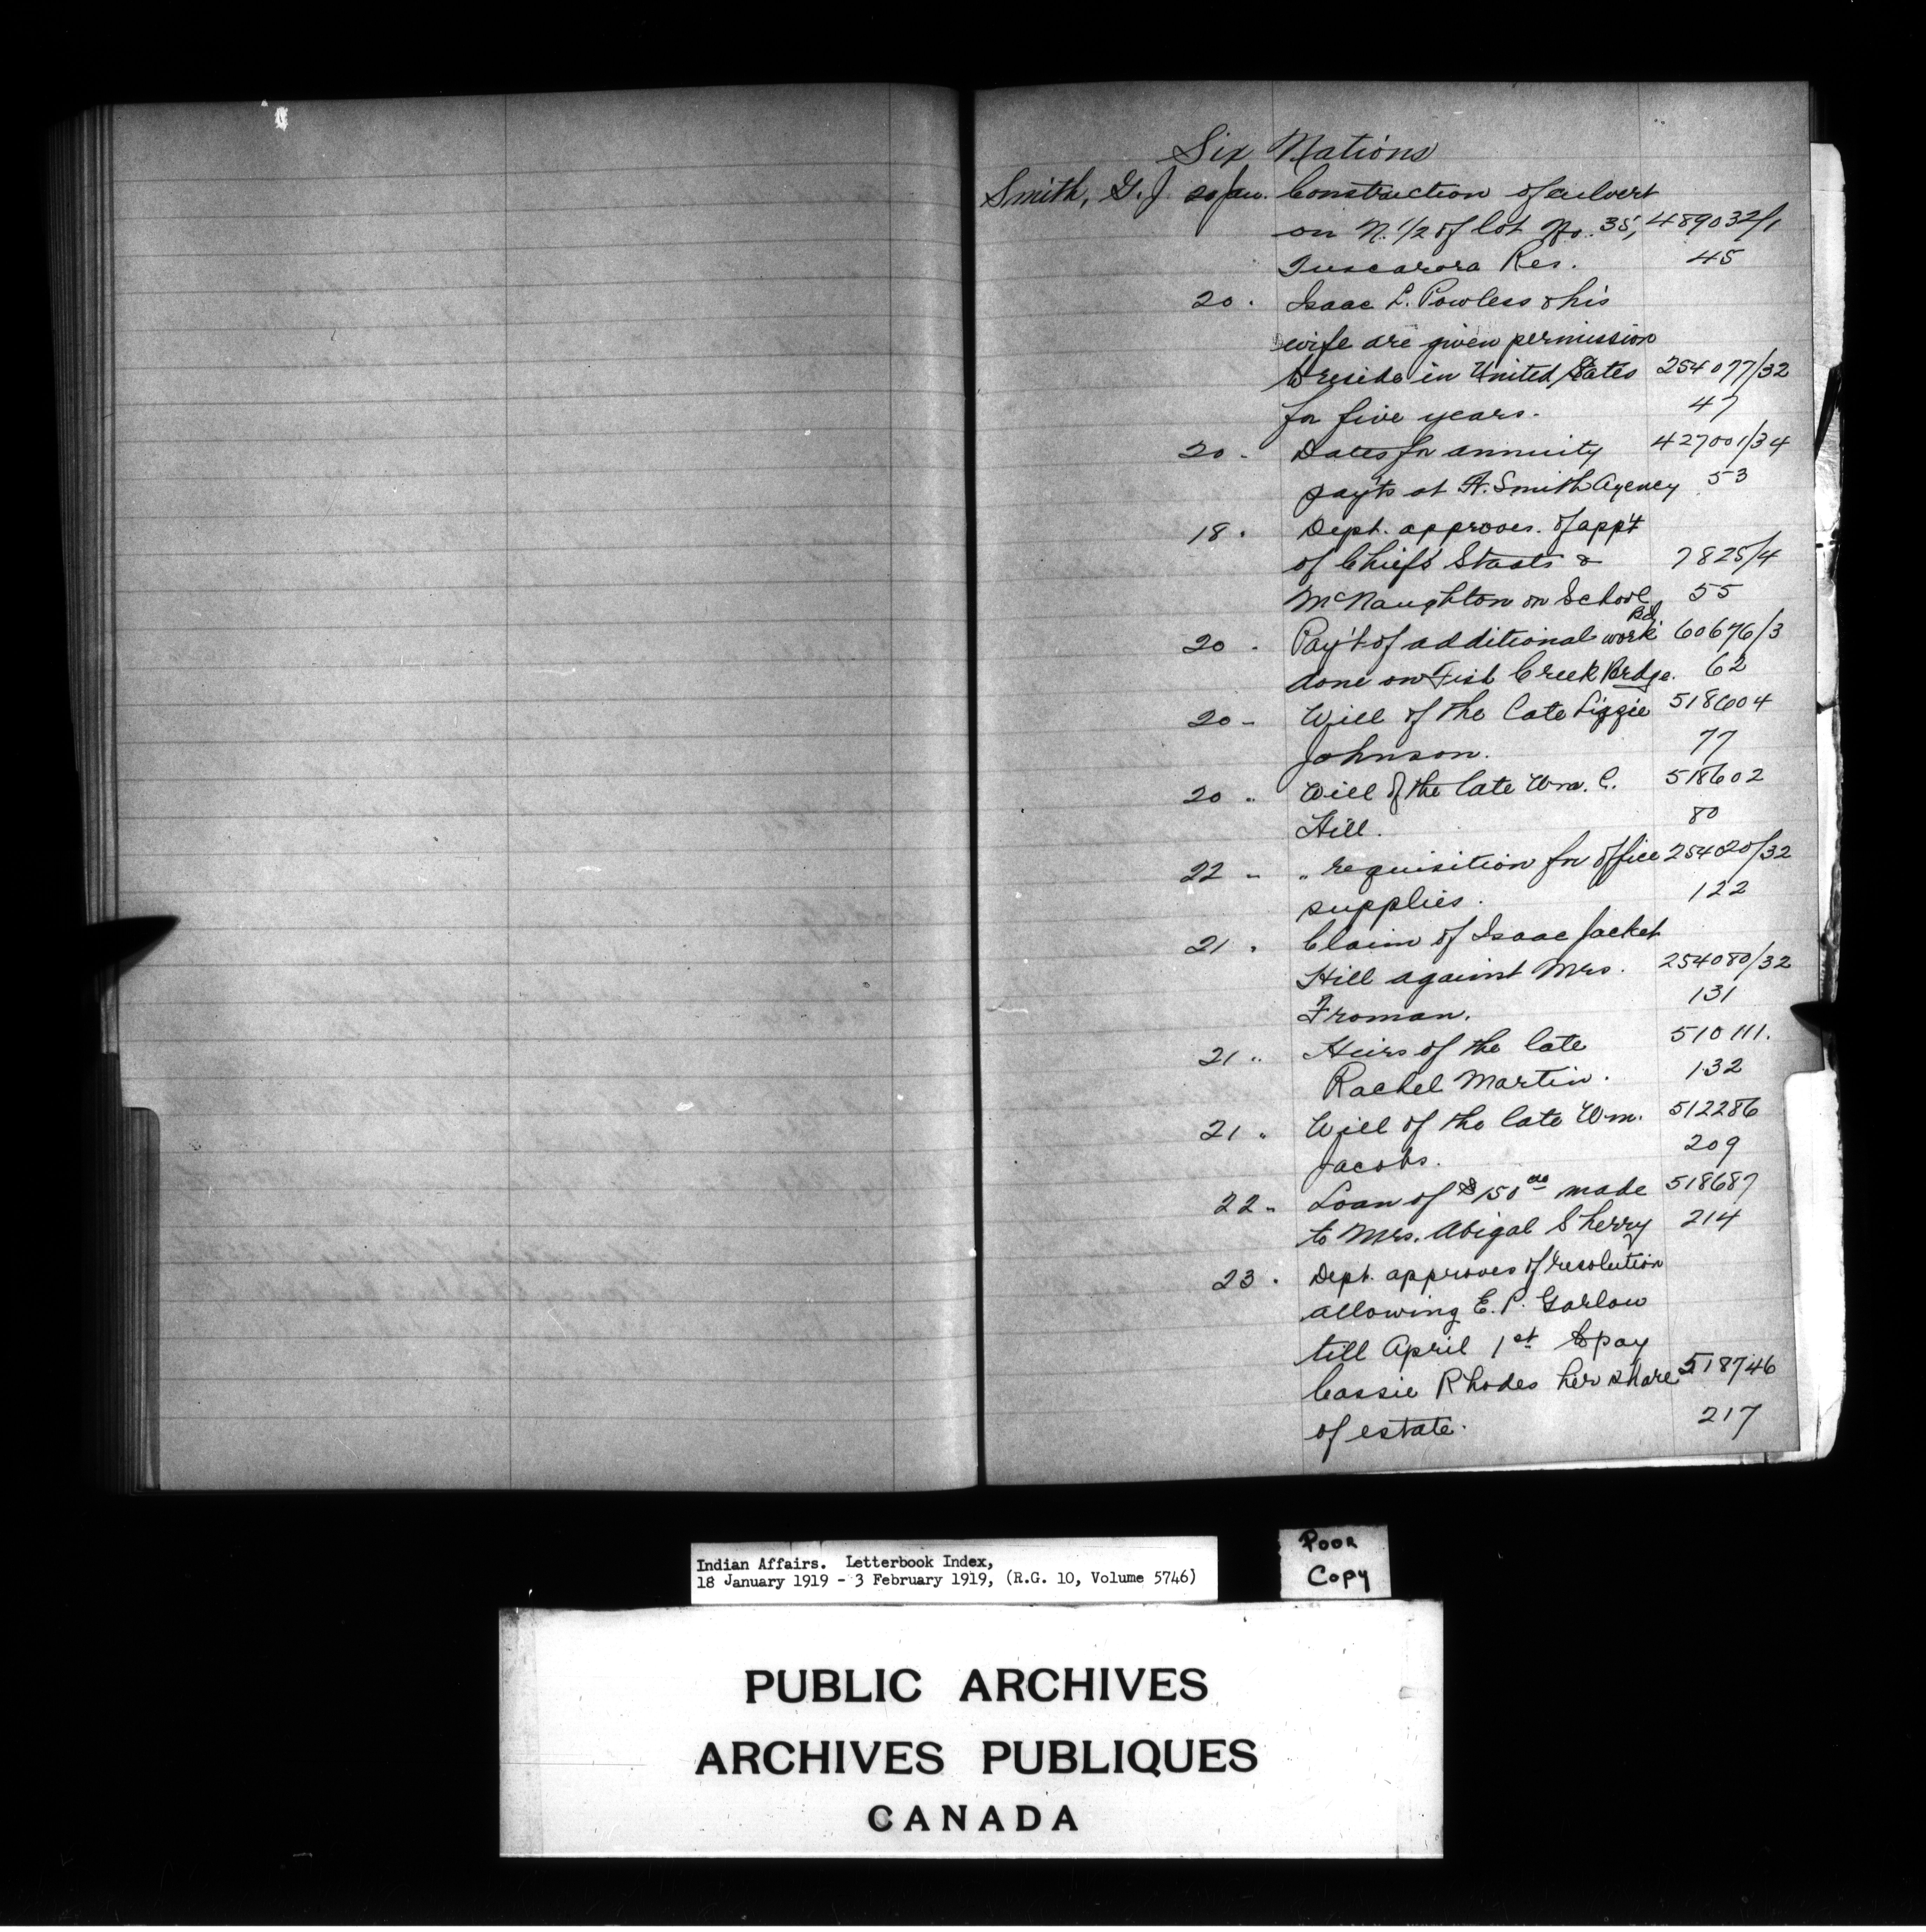 Six Nations
Smith, G. J. 20 Jan. Construction of culvert
on N. 1/2 of lot No. 35, 489032/1
Tuscarora Res. 45
20 . Isaac L. Powless & his
wife are given permission
to reside in United States 254077/32
for five years. 47
20 - Dates for annuity 427001/34
pay'ts at Ft. Smith Agency 53
18 . Dept. approves. of app't
of Chiefs Staats & 7825/4
McNaughton on School 55
Bd.
20 . Pay't of additional work 60676/3
done on Fish Creek Brdge. 62
20 - Will of the late Lizzie 518604
Johnson. 77
20 " Will of the late Wm. C. 518602
Hill. 80
22 - " requisition for office 254020/32
supplies. 122
21 . Claim of Isaac Jacket
Hill against Mrs. 254080/32
Froman. 131
21 " Heirs of the late 510111.
Rachel Martin. 132
21 " Will of the late Wm. 512286
Jacobs. 209
22 - Loan of $150 00 made 518687
to Mrs. Abigal Sherry 214
23 . Dept. approves of resolution
allowing E. P. Garlow
till April 1st to pay
Cassie Rhodes her share 518746
of estate. 217
Indian Affairs. Letterbook Index,
18 January 1919 - 3 February 1919, (R.G. 10, Volume 5746)
Poor
Copy
PUBLIC ARCHIVES
ARCHIVES PUBLIQUES
CANADA